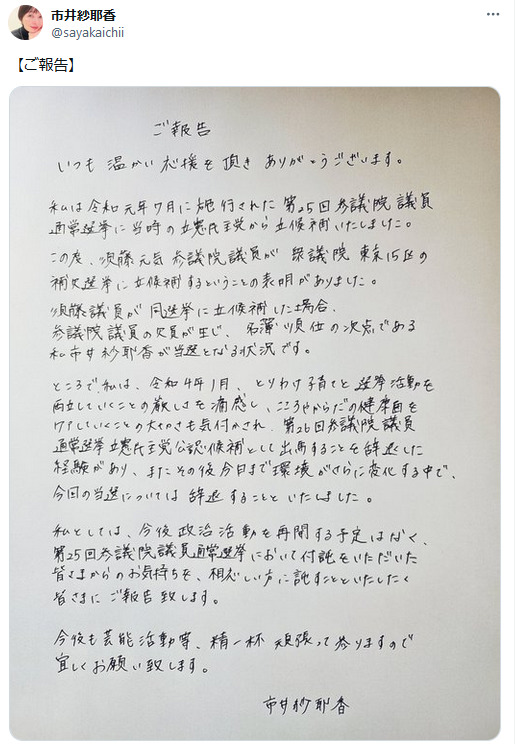 市井紗耶香
@sayakaichii
【ご報告】
ご報告
いつも 温かい 応援を 頂き ありがとうございます。
私は令和元年7月に施行された 第25回参議院議員
通常選挙に当時の立憲民主党から立候補いたしました。
この度、須藤元気 参議院議員が 衆議院 東京15区の
補欠選挙に立候補するということの表明がありました。
須藤議員が 同選挙に立候補した場合、
参議院議員の欠員が生じ、名簿順位の次点である
私市井紗耶香が当選となる状況です。
ところで、私は、令和4年1月、とりわけ子育てと選挙活動を
両立していくことの厳しさを痛感し、こころやからだの健康面を
ケアしていくことの大切さも気付かされ、第26回参議院議員
通常選挙立憲民主党公認候補として出馬することを辞退した
経験があり、またその後今日まで環境がさらに変化する中で、
今回の当選については 辞退することといたしました。
私としては、今後政治活動を再開する予定はなく、
第25回参議院議員通常選挙において付託をいただいた
皆さまからのお気持ちを、相応しい方に託すことといたしたく
皆さまに ご報告致します。
今後も芸能活動等、精一杯 頑張って参りますので
宜しくお願い致します。
市井紗耶香